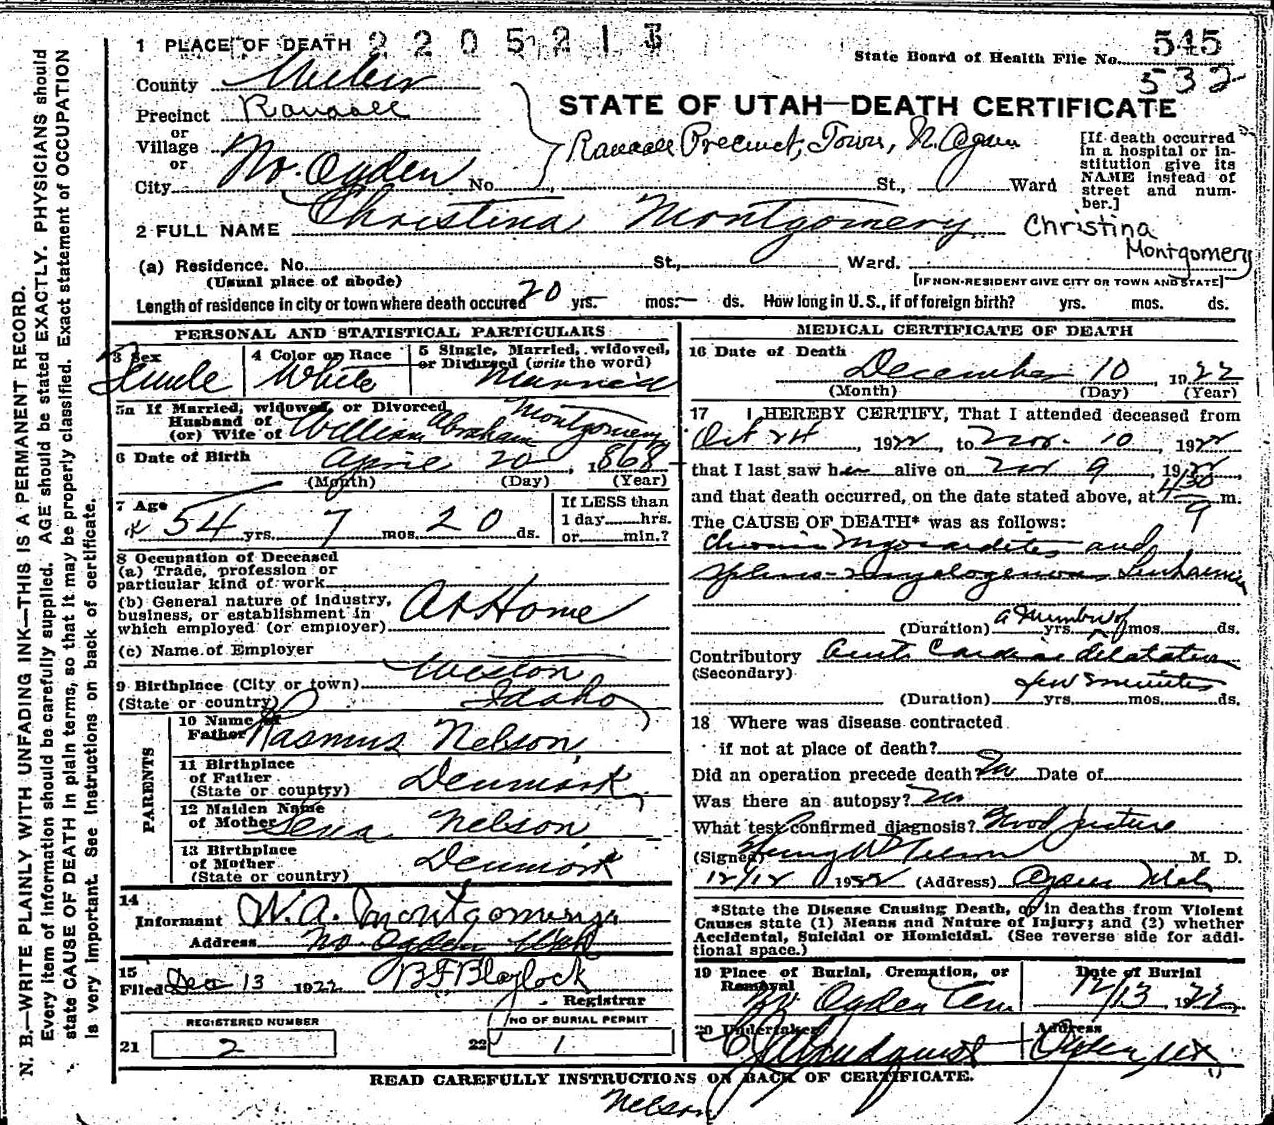 1 PLACE OF DEATH 2205213
State Board of Health File No. 545
532
County Weber
STATE OF UTAH—DEATH CERTIFICATE
Precinct Randall
or
Village
or
City No. Ogden No. St., Ward
Randall Precinct, Town, N. Ogden
[If death occurred in a hospital or institution give its NAME instead of street and number.]
2 FULL NAME Christina Montgomery
Christina Montgomery
(a) Residence. No. St., Ward.
(Usual place of abode) [IF NON-RESIDENT GIVE CITY OR TOWN AND STATE]
Length of residence in city or town where death occured 20 yrs. mos. ds. How long in U. S., if of foreign birth? yrs. mos. ds.
PERSONAL AND STATISTICAL PARTICULARS
3 Sex Female
4 Color or Race White
5 Single, Married, widowed, or Divorced (write the word) Married
5a If Married, widowed, or Divorced
Husband of
(or) Wife of William Abraham Montgomery
6 Date of Birth April 20, 1868
(Month) (Day) (Year)
7 Age 54 yrs. 7 mos. 20 ds.
If LESS than
1 day hrs.
or min.?
8 Occupation of Deceased
(a) Trade, profession or
particular kind of work
(b) General nature of industry,
business, or establishment in
which employed (or employer) At Home
(c) Name of Employer
9 Birthplace (City or town) Weston
(State or country) Idaho
PARENTS
10 Name of
Father Rasmus Nelson
11 Birthplace
of Father
(State or country) Denmark
12 Maiden Name
of Mother Sena Nelson
13 Birthplace
of Mother
(State or country) Denmark
14
Informant W. A. Montgomery
Address No. Ogden Utah
15
Filed Dec 13 1922 B F Blaylock
Registrar
REGISTERED NUMBER
21 2
NO OF BURIAL PERMIT
22 1
MEDICAL CERTIFICATE OF DEATH
16 Date of Death
December 10, 1922
(Month) (Day) (Year)
17 I HEREBY CERTIFY, That I attended deceased from
Oct 24, 1922, to Nov. 10, 1922
that I last saw her alive on Nov 9 1922
and that death occurred, on the date stated above, at 4/30 m.
The CAUSE OF DEATH* was as follows:
Chronic Myocarditis and
Spleno-myelogenous Leukaemia
(Duration) a number of yrs. mos. ds.
Contributory Acute Cardiac dilatation
(Secondary)
(Duration) few minutes yrs. mos. ds.
18 Where was disease contracted
if not at place of death?
Did an operation precede death? No Date of
Was there an autopsy? No
What test confirmed diagnosis? Blood picture
(Signed) Henry W M. D.
12/12 1922 (Address) Ogden Utah
*State the Disease Causing Death, or in deaths from Violent
Causes state (1) Means and Nature of Injury; and (2) whether
Accidental, Suicidal or Homicidal. (See reverse side for additional space.)
19 Place of Burial, Cremation, or
Removal Ogden Cem
Date of Burial
12/13, 1922
20 Undertaker Lindquist
Address
Ogden, Ut
READ CAREFULLY INSTRUCTIONS ON BACK OF CERTIFICATE.
Nelson
N. B.—WRITE PLAINLY WITH UNFADING INK—THIS IS A PERMANENT RECORD.
Every item of information should be carefully supplied. AGE should be stated EXACTLY. PHYSICIANS should
state CAUSE OF DEATH in plain terms, so that it may be properly classified. Exact statement of OCCUPATION
is very important. See instructions on back of certificate.